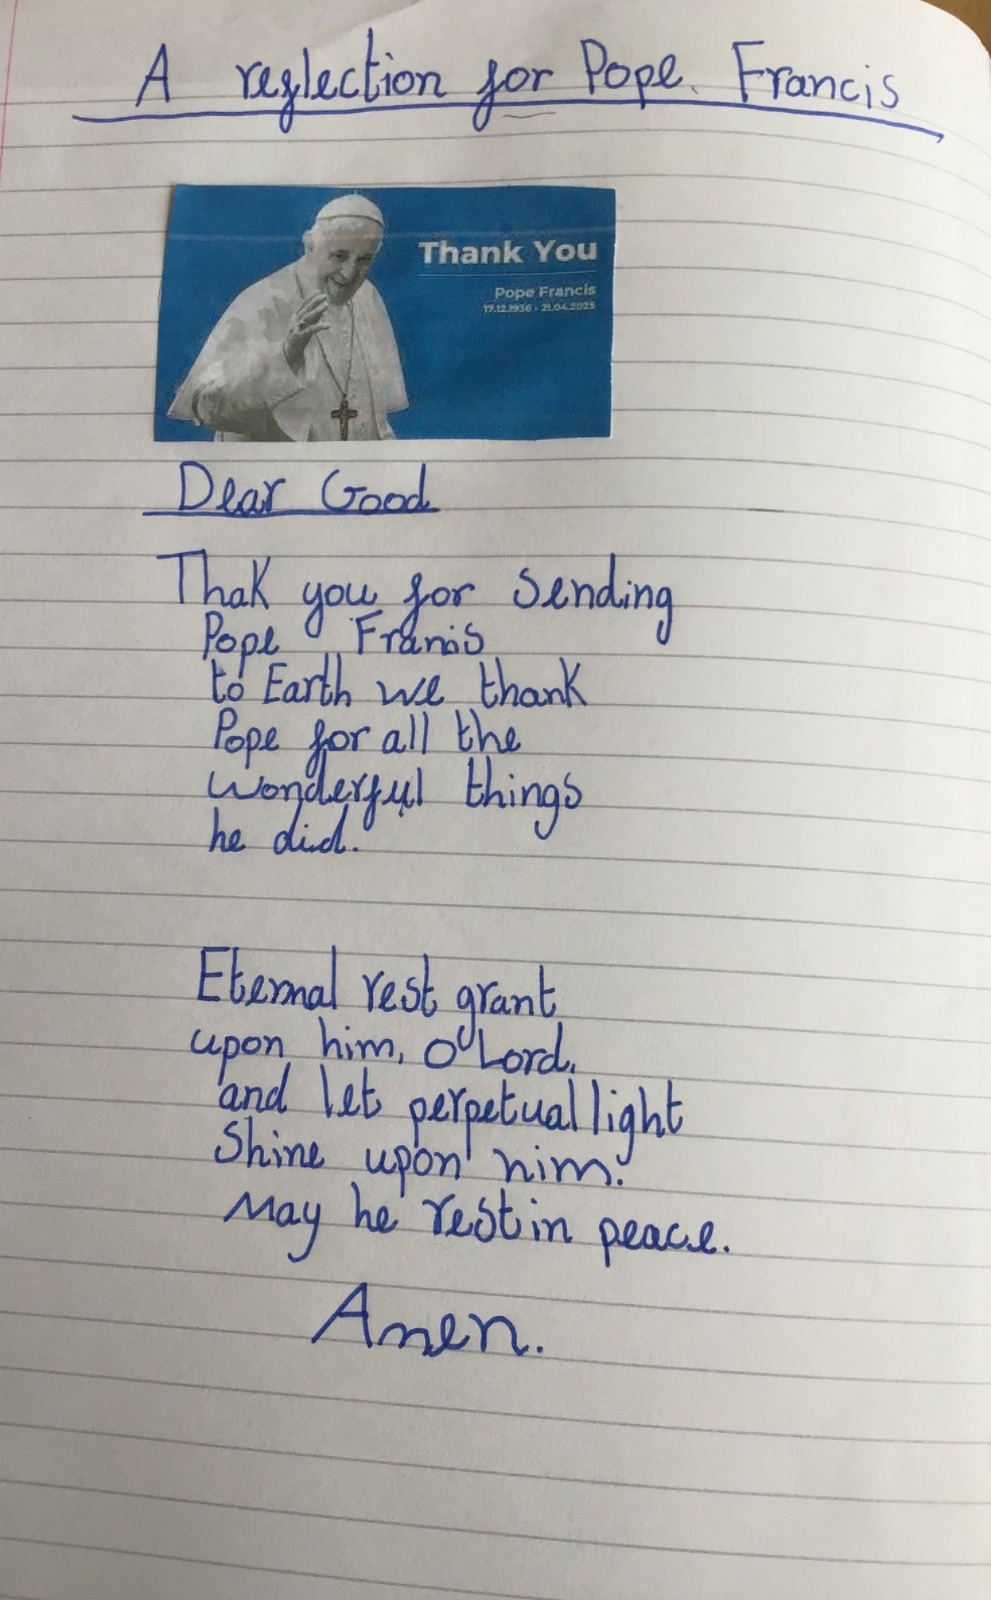 A reflection for Pope Francis
Thank You
Pope Francis
17.12.1936 - 21.04.2025
Dear Good
Thak you for sending
Pope Franis
to Earth we thank
Pope for all the
wonderful things
he did.
Eternal rest grant
upon him, O'Lord,
and let perpetual light
Shine upon him.
May he rest in peace.
Amen.